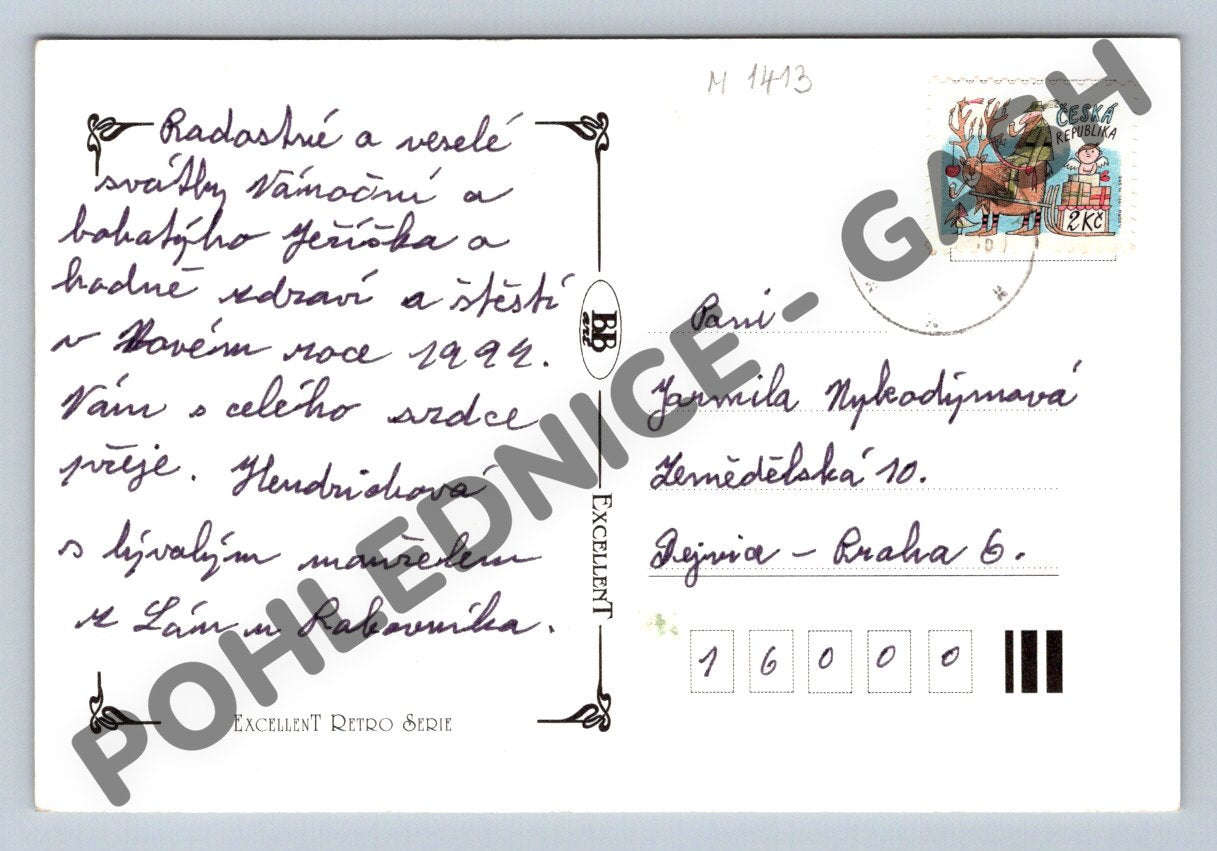 M 1413
ČESKÁ
REPUBLIKA
2 Kč
Radostné a veselé
svátky Vánoční a
bohatýho Ježíška a
hodně zdraví a štěstí
v Novém roce 1994.
Vám s celého srdce
přeje. Hendrichová
s bývalým manželem
z Lán u Rakovníka.
EXCELLENT RETRO SERIE
BB
art
EXCELLENT
Paní
Jarmila Nykodýmová
Zemědělská 10.
Dejvice - Praha 6.
16000
POHLEDNICE - GASH